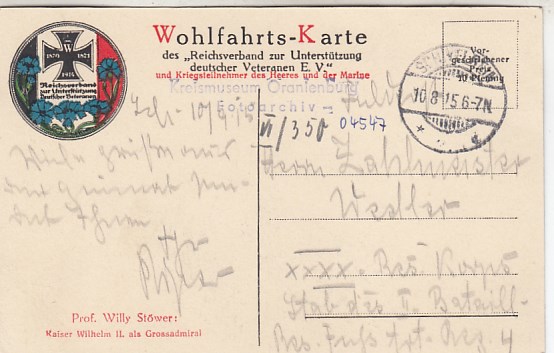 Wohlfahrts-Karte
des „Reichsverband zur Unterstützung
deutscher Veteranen E. V."
und Kriegsteilnehmer des Heeres und der Marine
W
1870 1871
1914
Reichsverband
zur Unterstützung
Deutscher Veteranen
Vor-
geschriebener
Preis
10 Pfennig
Kreismuseum Oranienburg
- Fotoarchiv -
VI/350 04547
10.8.15.6-7N
10/8/15
Viele Grüße aus
der
Ihnen
Ihr
Herrn Zahlmeister
xxxx. Res Korps
Stab des II. Bataill-
Res. Fuß Art. Reg. 4
Prof. Willy Stöwer:
Kaiser Wilhelm II. als Grossadmiral